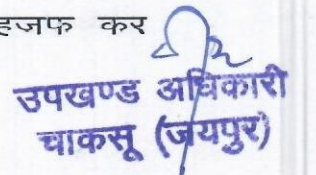 हजफ कर
उपखण्ड अधिकारी
चाकसू (जयपुर)